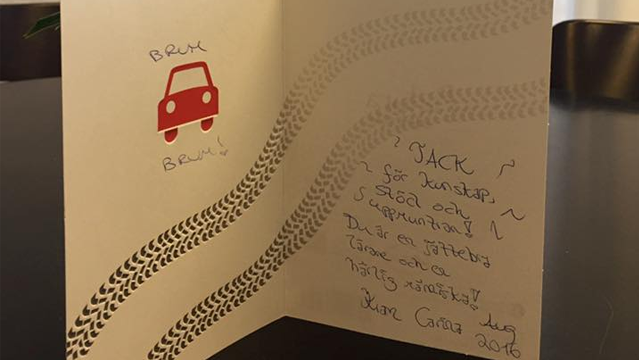 BRUM
BRUM!
TACK
för kunskap,
stöd och
uppmuntran!
Du är en jättebra
lärare och en
härlig människa!
Kram Carina Aug
2016